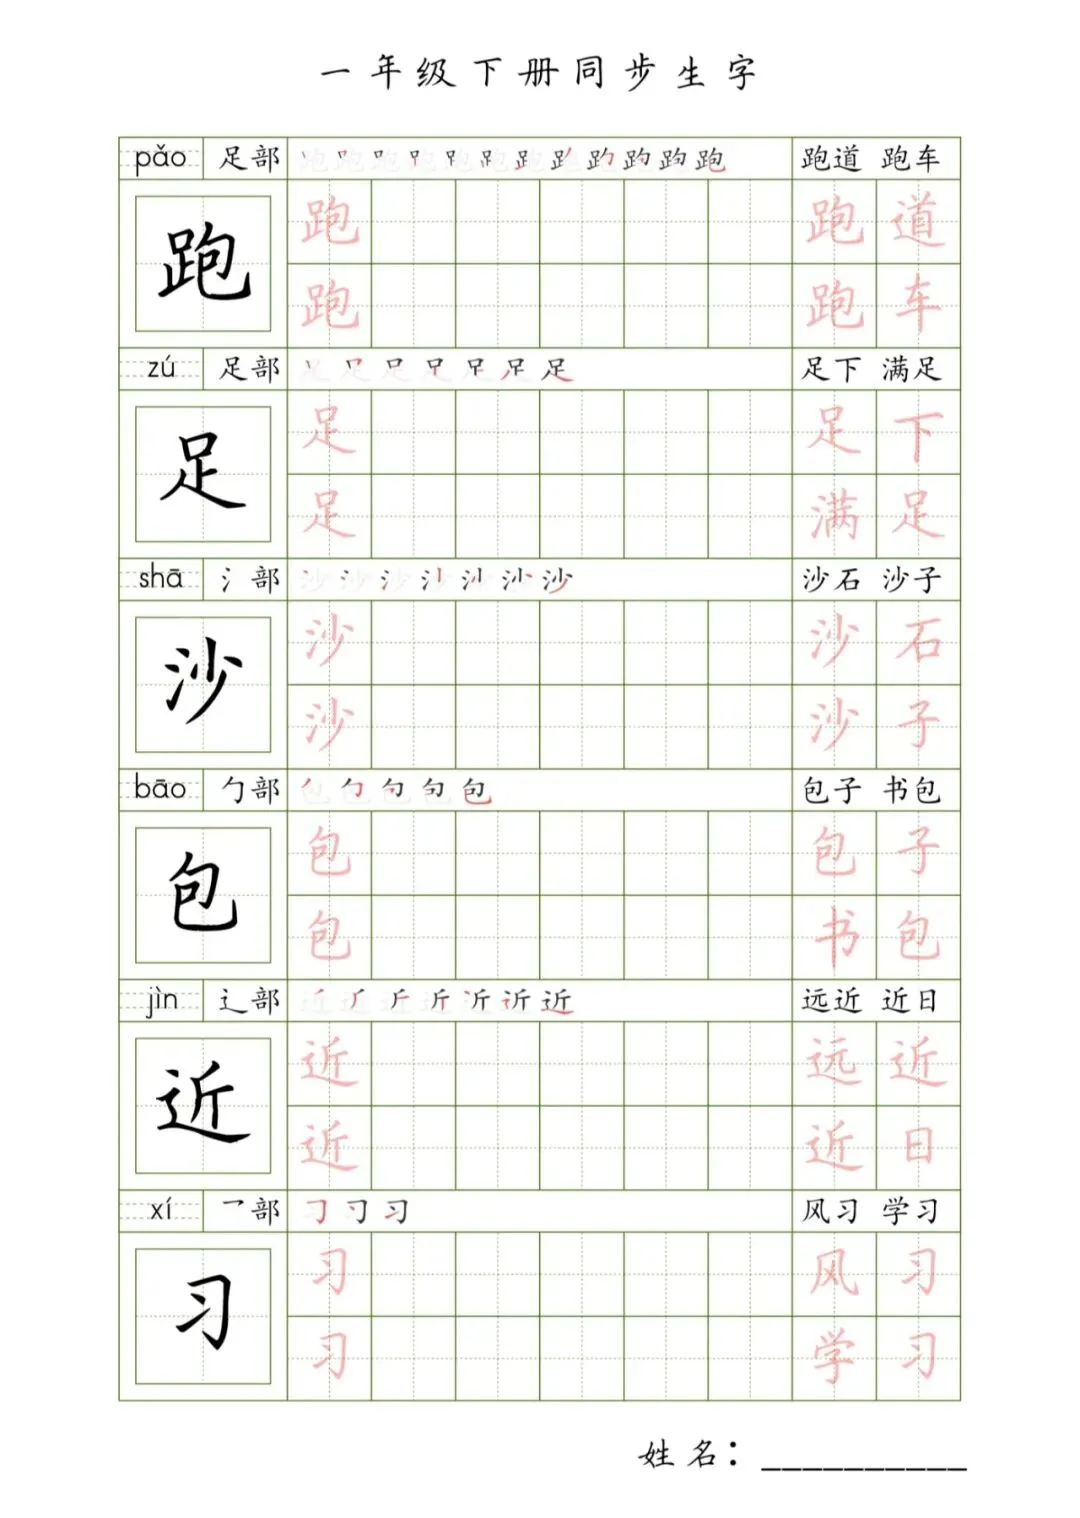 一年级下册同步生字
pǎo 足部 跑道 跑车
跑 跑 跑道
跑 跑车
zú 足部 足下 满足
足 足 足下
足 满足
shā 氵部 沙石 沙子
沙 沙 沙石
沙 沙子
bāo 勹部 包子 书包
包 包 包子
包 书包
jìn 辶部 远近 近日
近 近 远近
近 近日
xí 乛部 风习 学习
习 习 风习
习 学习
姓名：__________